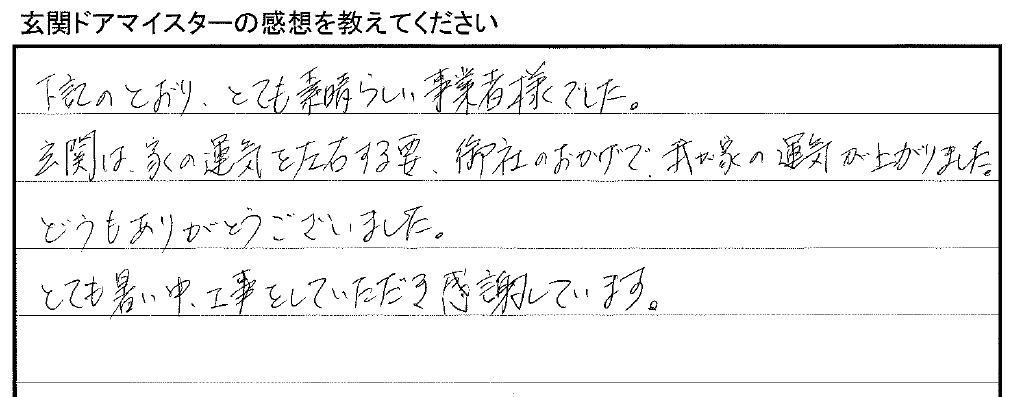 玄関ドアマイスターの感想を教えてください
下記のとおり、とても素晴らしい事業者様でした。
玄関は、家の運気を左右する要、御社のおかげで、我が家の運気が上がりました。
どうもありがとうございました。
とても暑い中、工事をしていただき感謝しています。